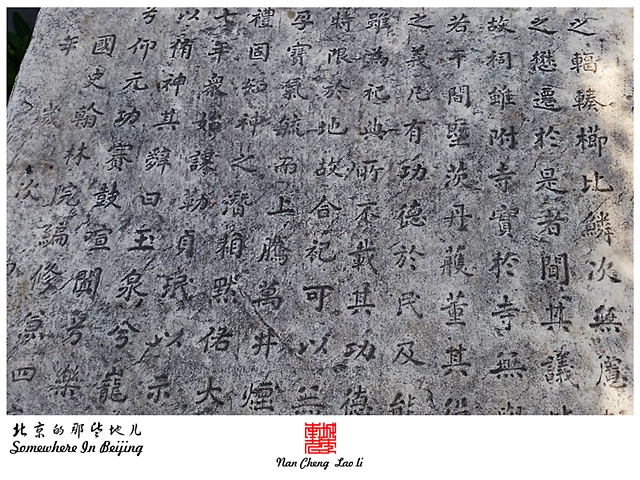 之輻輳櫛比鱗次無
之懋遷於是者聞其議
故祠雖附寺實於寺無
若干間塈茨丹雘董其
之義凡有功德於民及能
雖為祀典所不載其功德
特限於地故合祀可以無
孕寶氣毓而上騰萬井煙
禮固知神之潛相默佑大
七年眾始謀勒貞珉以示
以補神其辭曰玉泉兮
兮仰元功賽鼓喧闐兮樂
國史翰林院編修
年歲次
四
北京的那些地儿
Somewhere In Beijing
Nan Cheng Lao li